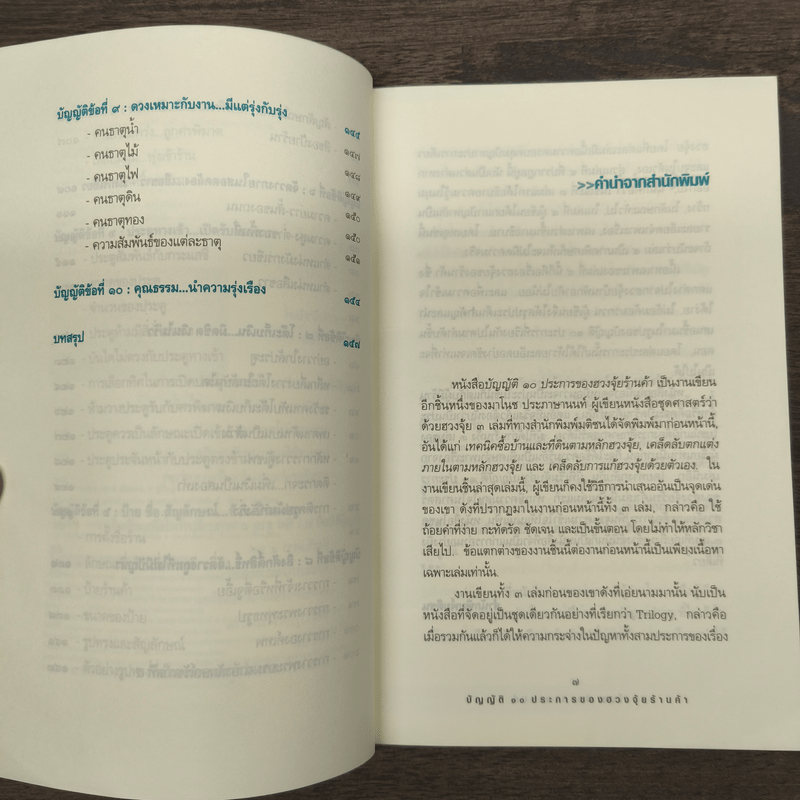 บัญญัติข้อที่ ๙ : ดวงเหมาะกับงาน...มีแต่รุ่งกับรุ่ง ๑๔๕
- คนธาตุน้ำ
- คนธาตุไม้ ๑๔๗
- คนธาตุไฟ ๑๔๘
- คนธาตุดิน ๑๔๙
- คนธาตุทอง ๑๕๐
- ความสัมพันธ์ของแต่ละธาตุ ๑๕๐
๑๕๑
บัญญัติข้อที่ ๑๐ : คุณธรรม...นำความรุ่งเรือง ๑๕๔
บทสรุป ๑๕๗
>>คำนำจากสำนักพิมพ์
หนังสือบัญญัติ ๑๐ ประการของฮวงจุ้ยร้านค้า เป็นงานเขียน
อีกชิ้นหนึ่งของมาโนช ประภาษานนท์ ผู้เขียนหนังสือชุดศาสตร์ว่า
ด้วยฮวงจุ้ย ๓ เล่มที่ทางสำนักพิมพ์มติชนได้จัดพิมพ์มาก่อนหน้านี้,
อันได้แก่ เทคนิคซื้อบ้านและที่ดินตามหลักฮวงจุ้ย, เคล็ดลับตกแต่ง
ภายในตามหลักฮวงจุ้ย และ เคล็ดลับการแก้ฮวงจุ้ยด้วยตัวเอง. ใน
งานเขียนชิ้นล่าสุดเล่มนี้, ผู้เขียนก็คงใช้วิธีการนำเสนออันเป็นจุดเด่น
ของเขา ดังที่ปรากฏมาในงานก่อนหน้านี้ทั้ง ๓ เล่ม, กล่าวคือ ใช้
ถ้อยคำที่ง่าย กะทัดรัด ชัดเจน และเป็นขั้นตอน โดยไม่ทำให้หลักวิชา
เสียไป. ข้อแตกต่างของงานชิ้นนี้ต่องานก่อนหน้านี้เป็นเพียงเนื้อหา
เฉพาะเล่มเท่านั้น.
งานเขียนทั้ง ๓ เล่มก่อนของเขาดังที่เอ่ยนามมานั้น นับเป็น
หนังสือที่จัดอยู่เป็นชุดเดียวกันอย่างที่เรียกว่า Trilogy, กล่าวคือ
เมื่อรวมกันแล้วก็ได้ให้ความกระจ่างในปัญหาทั้งสามประการของเรื่อง
๗
บัญญัติ ๑๐ ประการของฮวงจุ้ยร้านค้า